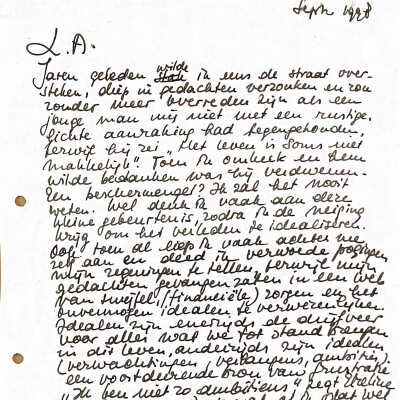 Septr 1998
L.A.
Jaren geleden wilde ik eens de straat over-
steken, diep in gedachten verzonken en zou
zonder meer overreden zijn als een
jonge man mij niet met een rustige,
lichte aanraking had tegengehouden,
terwijl hij zei "Het leven is soms niet
makkelijk". Toen ik omkeek en hem
wilde bedanken was hij verdwenen.
Een beschermengel? Ik zal het nooit
weten. Wel denk ik vaak aan deze
kleine gebeurtenis, zodra ik de neiging
krijg om het verleden te idealiseren.
Ook toen al liep ik vaak achter me
zelf aan en deed ik verwoede pogingen
mijn zegeningen te tellen, terwijl mijn
gedachten gevangen zaten in een web
van twijfel, (financiële) zorgen en het
onvermogen idealen te verwezenlijken.
Idealen zijn enerzijds de drijfveer
voor alles wat we tot stand brengen
in dit leven, anderzijds zijn idealen
(verwachtingen, verlangens, ambities)
een voortdurende bron van frustratie
"Ik ben niet zo ambitieus" zegt